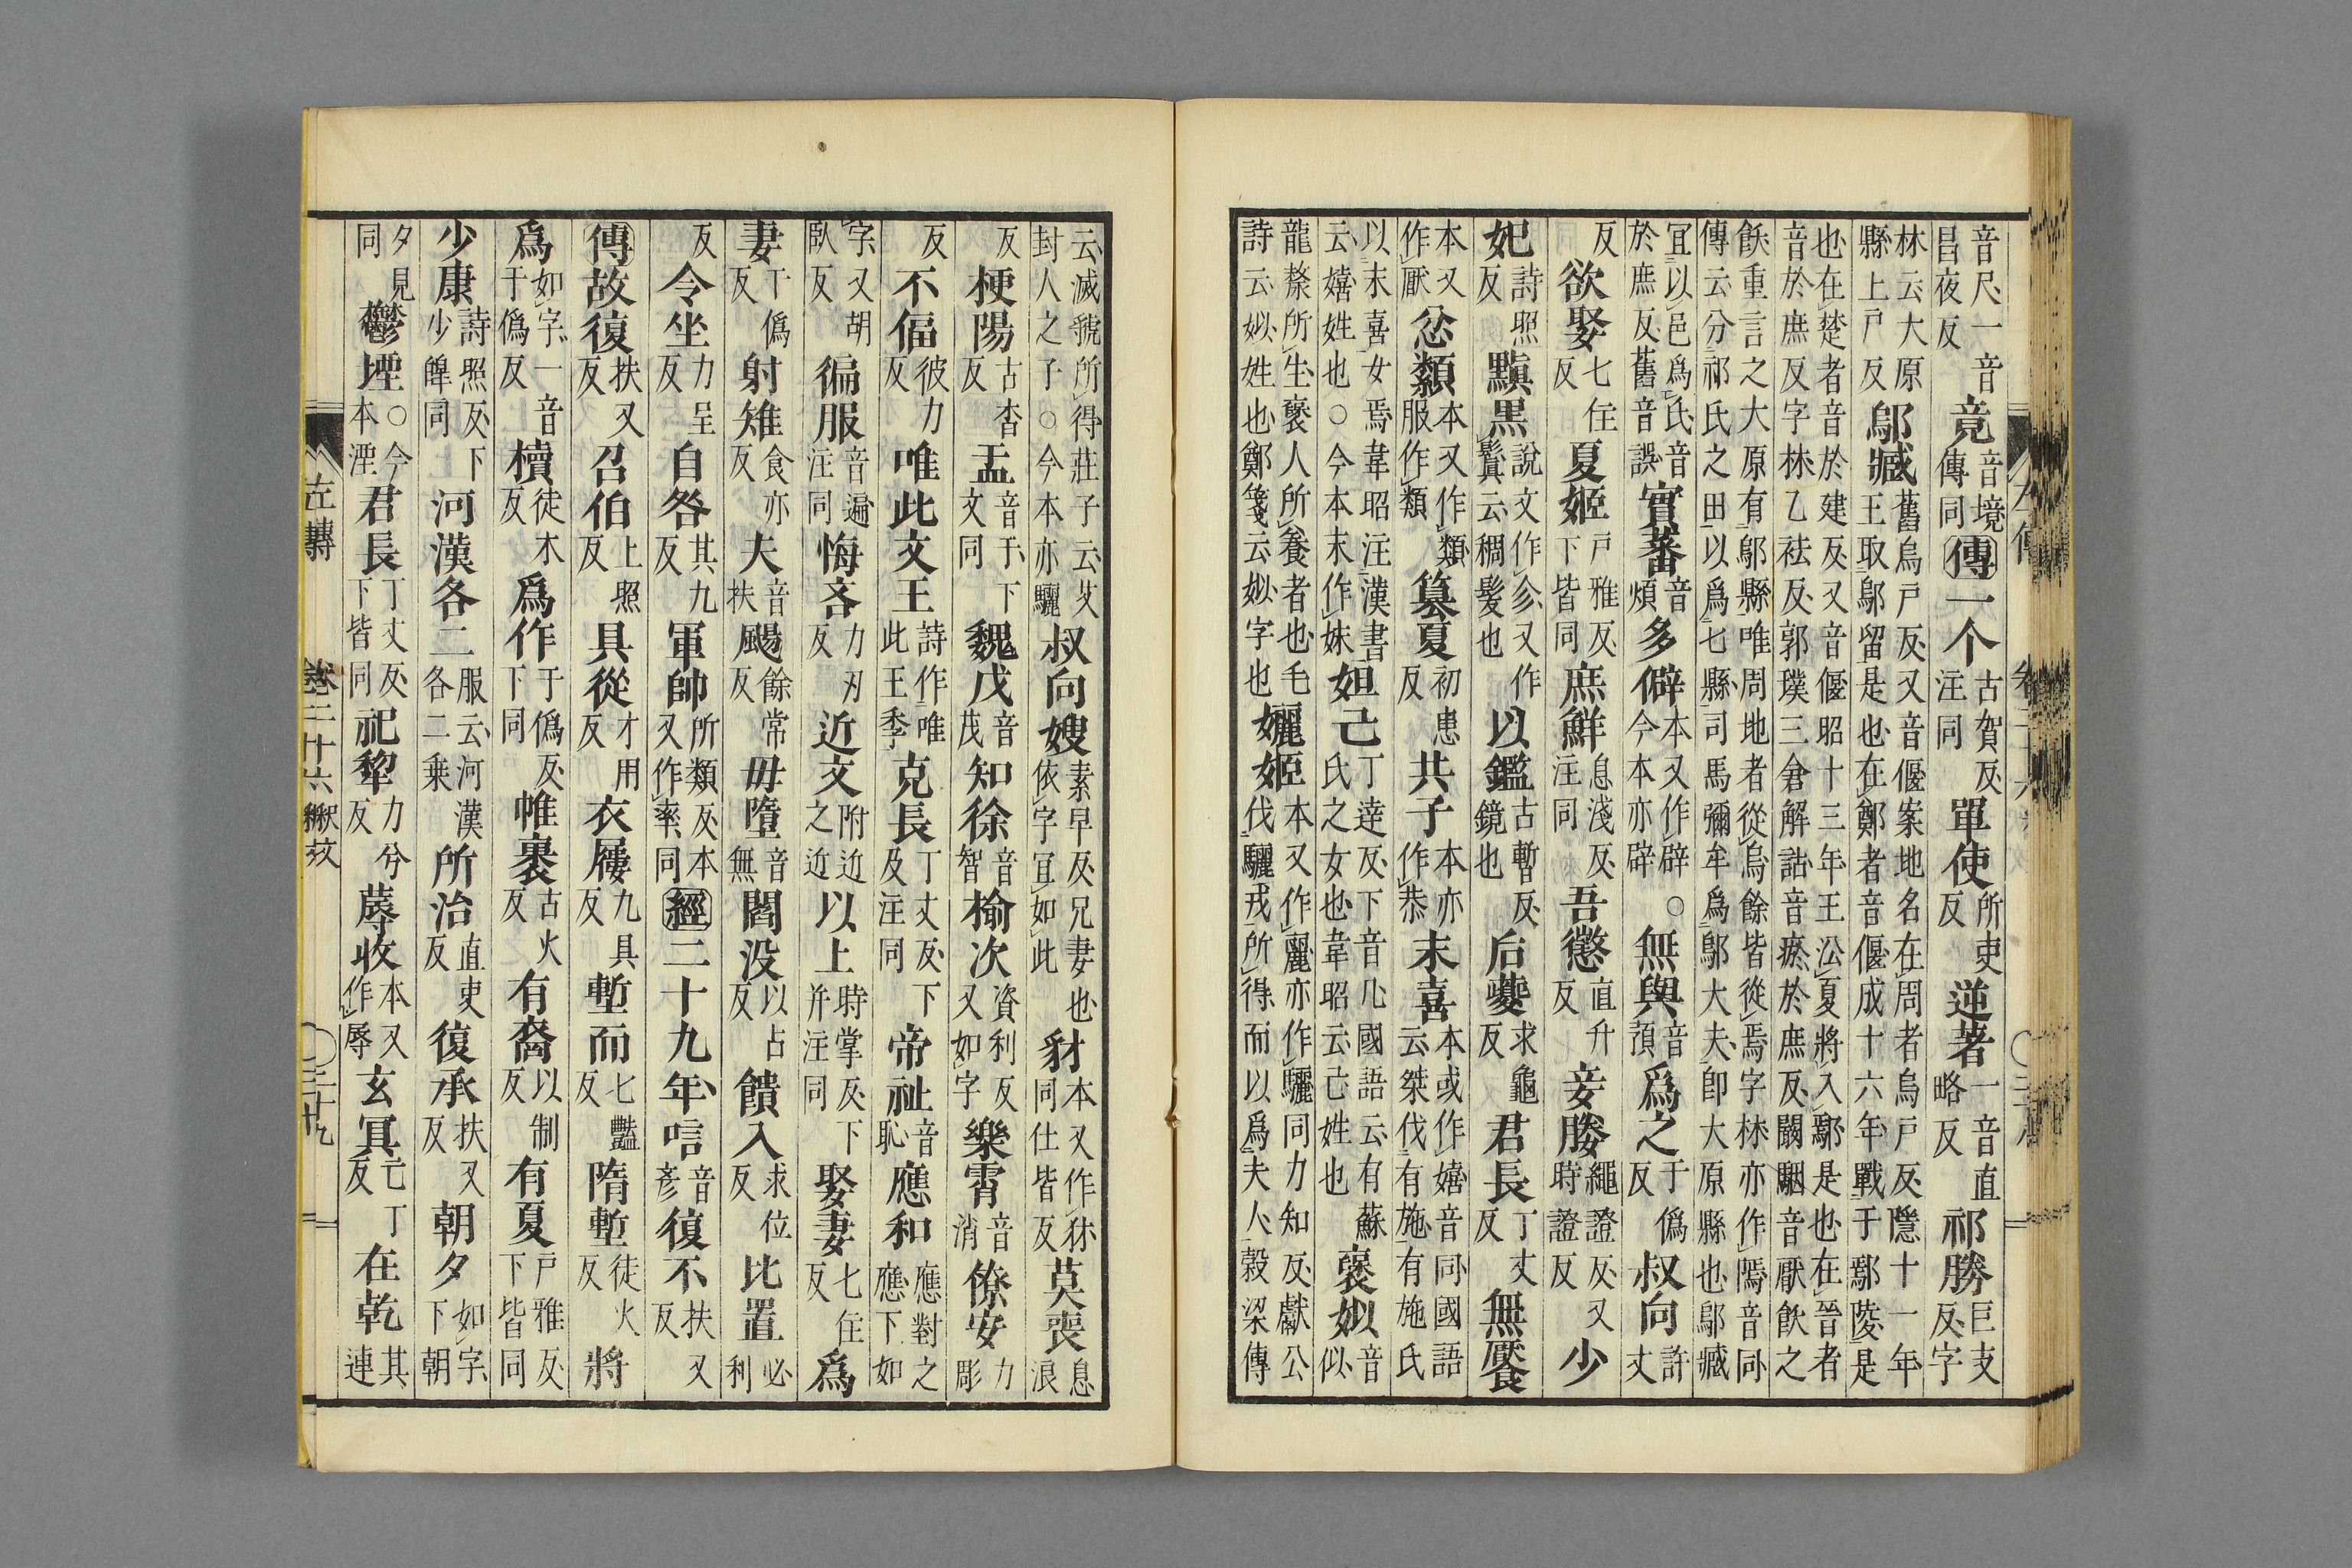 音尺一音昌夜反竟音境傳同傳一个古賀反注同單使所吏反逆著一音直略反祁勝巨支反字
林云大原縣上尸反鄔臧舊烏戶反又音偃案地名在周者烏戶反隱十一年王取鄔留是也在鄭者音偃成十六年戰于鄢陵是
也在楚者音於建反又音偃昭十三年王㳂夏將入鄢是也在晉者音於庶反字林乙袪反郭璞三倉解詁音瘀於庶反闞駰音厭飫之
飫重言之大原有鄔縣唯周地者從烏餘皆從焉字林亦作隖音同傳云分祁氏之田以爲七縣司馬彌牟爲鄔大夫即大原縣也鄔臧
冝以邑爲氏音於庶反舊音誤實蕃音煩多僻本又作辟○今本亦辟無與音預爲之于僞反叔向許丈
反欲娶七住反夏姬戶雅反下皆同庶鮮息淺反注同吾懲直升反妾媵繩證反又時證反少
妃詩照反黰黑說文作㐱又作鬒云稠髮也以鑑古暫反鏡也后夔求龜反君長丁丈反無饜
本又作厭忿纇本又作類服作類簒夏初患反共子本亦作恭末喜本或作嬉音同國語云桀伐有施有施氏
以末喜女焉韋昭注漢書云嬉姓也○今本末作妹妲己丁達反下音几國語云有蘇氏之女也韋昭云己姓也褒姒音似
龍漦所生褒人所養者也毛詩云姒姓也鄭箋云姒字也孋姬本又作麗亦作驪同力知反獻公伐驪戎所得而以爲夫人榖梁傳
云滅虢所得莊子云艾封人之子○今本亦驪叔向嫂素早反兄妻也依字冝如此豺本又作犲同仕皆反莫喪息浪
反梗陽古杏反盂音于下文同魏戊音茂知徐音智榆次資利反又如字樂霄音消僚安力彫
反不偪彼力反唯此文王詩作唯此王季克長丁丈反下及注同帝祉音恥應和應對之應下如
字又胡臥反徧服音遍注同悔吝力刃反近文附近之近以上時掌反下并注同娶妻七住反爲
妻于僞反射雉食亦反夫音扶颺餘常反毋墮音無閻没以占反饋入求位反比置必利
反令坐力呈反自咎其九反軍帥所類反本又作率同經二十九年唁音彥復不扶又反
傳故復扶又反召伯上照反具從才用反衣屨九具反塹而七豔反隋塹徒火反將
爲如字一音于僞反櫝徒木反爲作于僞反下同帷裹古火反有裔以制反有夏戶雅反下皆同
少康詩照反下少皥同河漢各二服云河漢各二乘所治直吏反復承扶又反朝夕如字下朝
夕見同鬱堙○今本湮君長丁丈反下皆同祀犂力兮反蓐收本又作辱玄冥亡丁反在乾其連
左傳 卷二十六 釋文 ○二十九